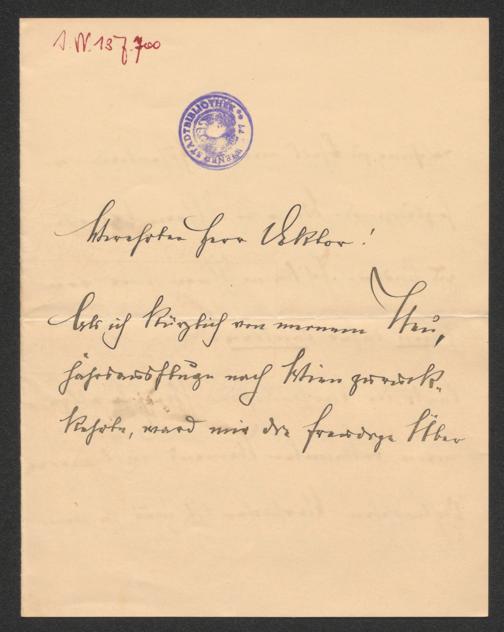 I.N. 137.700
WIENER STADTBIBLIOTHEK
Verehrter Herr Doktor!
Als ich kürzlich von meinem Neu,
jahrsausfluge nach Wien zurück-
kehrte, ward mir die freudige Über